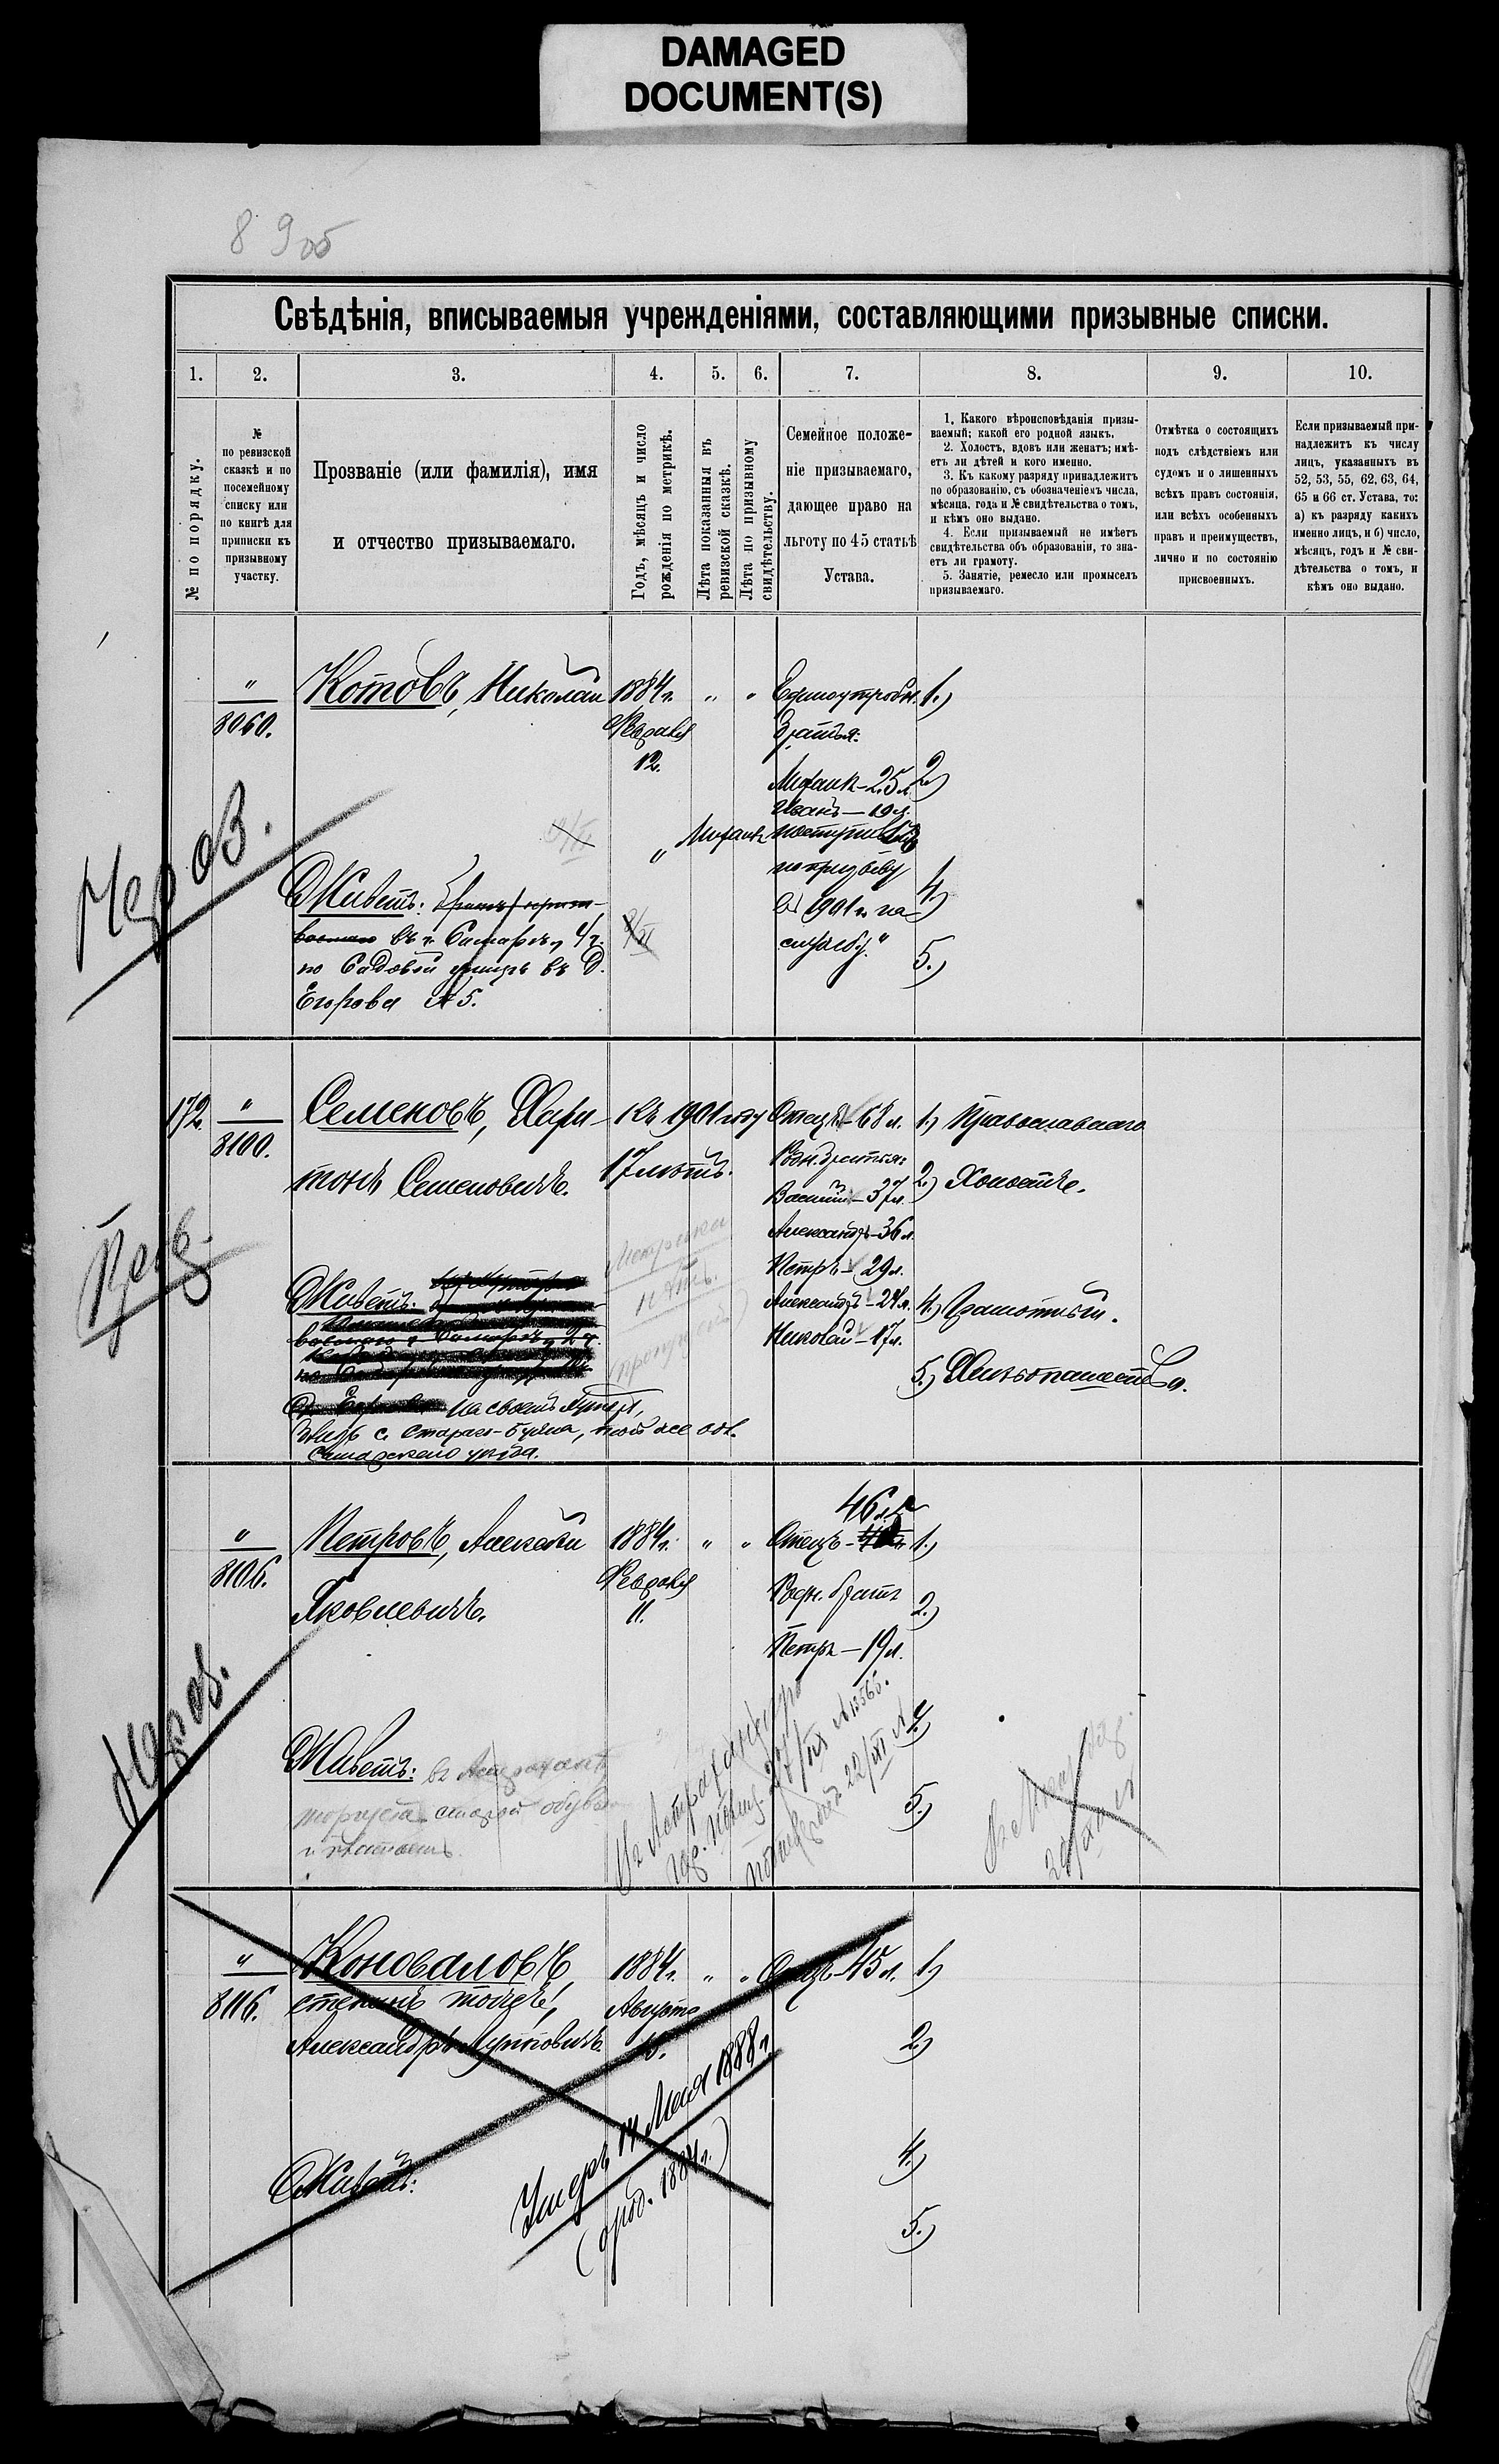 DAMAGED
DOCUMENT(S)
8 9 об
Свѣдѣнія, вписываемыя учрежденіями, составляющими призывные списки.
1. 2. 3. 4. 5. 6. 7. 8. 9. 10.
№ по порядку.
№
по ревизской
сказкѣ и по
посемейному
списку или
по книгѣ для
приписки къ
призывному
участку.
Прозваніе (или фамилія), имя
и отчество призываемаго.
Годъ, мѣсяцъ и число
рожденія по метрикѣ.
Лѣта показанныя въ
ревизской сказкѣ.
Лѣта по призывному
свидѣтельству.
Семейное положе-
ніе призываемаго,
дающее право на
льготу по 45 статьѣ
Устава.
1. Какого вѣроисповѣданія призы-
ваемый; какой его родной языкъ.
2. Холостъ, вдовъ или женатъ; имѣ-
етъ ли дѣтей и кого именно.
3. Къ какому разряду принадлежитъ
по образованію, съ обозначеніемъ числа,
мѣсяца, года и № свидѣтельства о томъ,
и кѣмъ оно выдано.
4. Если призываемый не имѣетъ
свидѣтельства объ образованіи, то зна-
етъ ли грамоту.
5. Занятіе, ремесло или промыселъ
призываемаго.
Отмѣтка о состоящихъ
подъ слѣдствіемъ или
судомъ и о лишенныхъ
всѣхъ правъ состоянія,
или всѣхъ особенныхъ
правъ и преимуществъ,
лично и по состоянію
присвоенныхъ.
Если призываемый при-
надлежитъ къ числу
лицъ, указанныхъ въ
52, 53, 55, 62, 63, 64,
65 и 66 ст. Устава, то:
а) къ разряду какихъ
именно лицъ, и б) число,
мѣсяцъ, годъ и № сви-
дѣтельства о томъ, и
кѣмъ оно выдано.
"
8060.
Котовъ, Николай
1884 г.
Февраля
12.
" "
Единоутробн.
братья:
Михаилъ – 25 л.
Иванъ – 19 л.
" Михаилъ поступилъ
по призыву
въ 1901 г. на
службу."
1.)
2.)
4.)
5.)
Живетъ:
въ г. Самарѣ, 4 ч.
по Садовой улицѣ въ д.
Егорова № 5.
172.
"
8100.
Семеновъ, Хари-
тонъ Семеновичъ.
Къ 1901 году
17 лѣтъ.
Метрики
нѣтъ.
Отецъ – 68 л.
Родн. братья:
Василій – 37 л.
Александръ – 36 л.
Петръ – 29 л.
Александръ – 24 л.
Николай – 17 л.
1.) Православнаго
2.) Холостъ.
4.) Грамотный.
5.) Хлѣбопашество.
Живетъ:
на своемъ хуторѣ,
близъ с. Стараго-Буяна, той же вол.
Самарскаго уѣзда.
"
8106.
Петровъ, Алексѣй
Яковлевичъ.
1884 г.
Февраля
11.
" "
46 л.
Отецъ –
Родн. братъ
Петръ – 19 л.
1.)
2.)
4.)
5.)
Живетъ: въ Астрахани
торгуетъ старой обувью
"
8116.
Коноваловъ,
Степинъ тоже,
Александръ
1884 г.
Августа
" "
Отецъ – 45 л.
1.)
2.)
4.)
5.)
Живетъ:
Умеръ 14 Мая 1888 г.
(о род. 1884 г.)